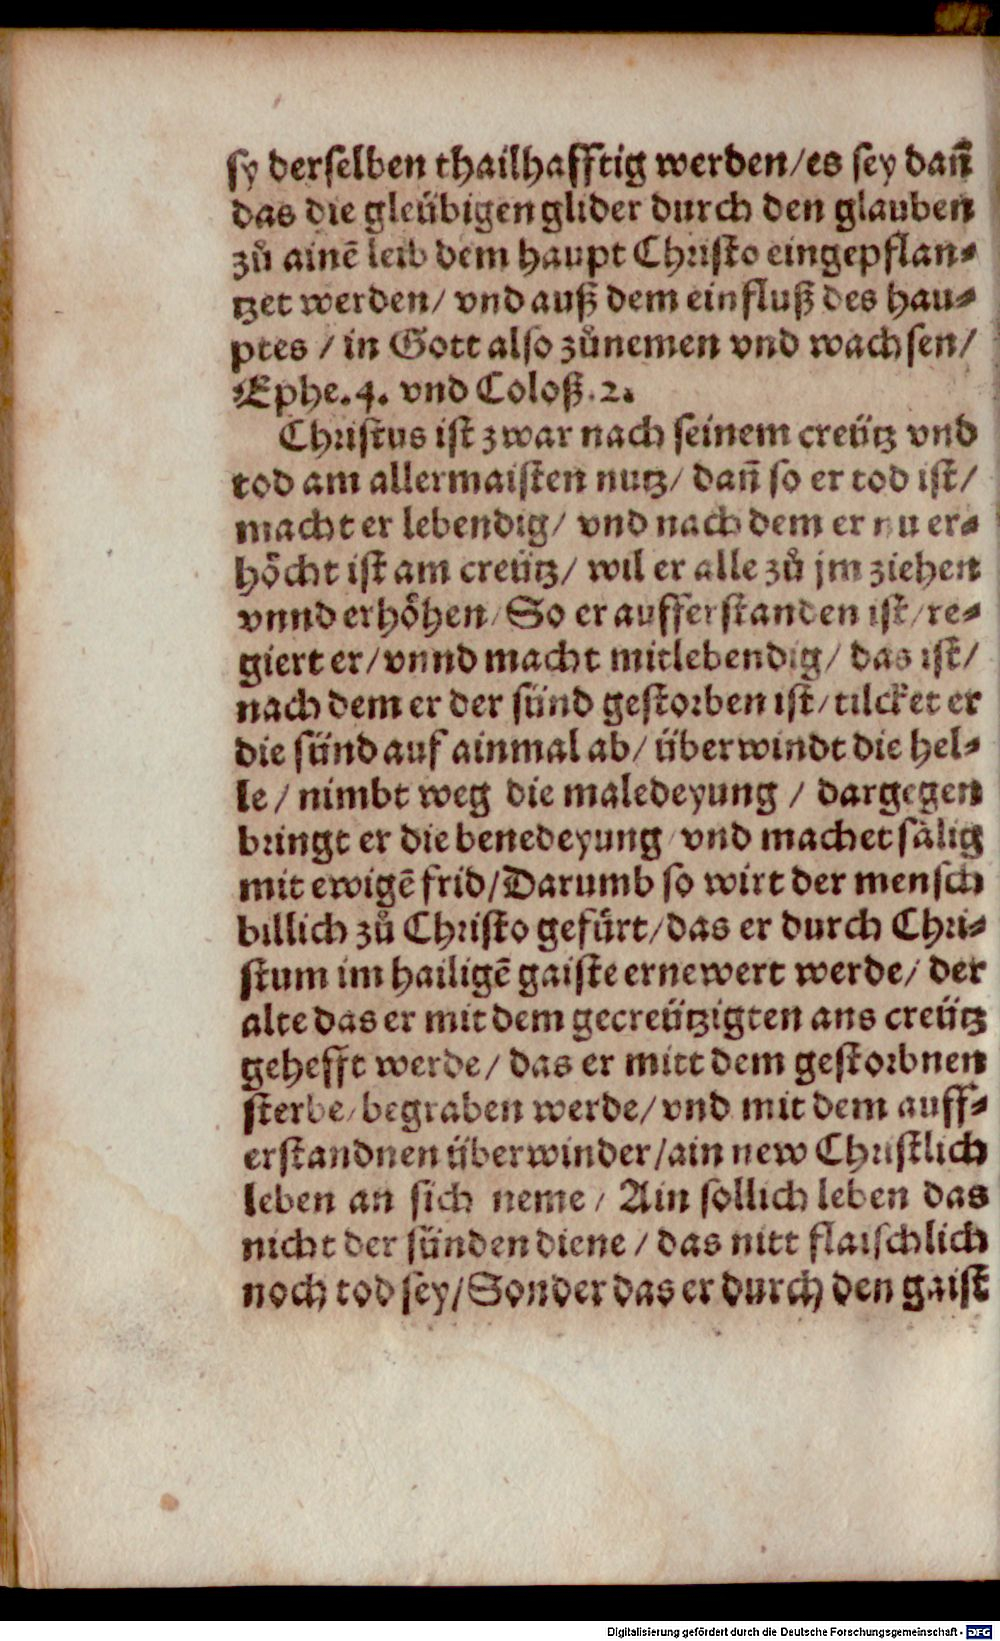 sy derselben thailhafftig werden/es sey dañ
das die gleübigen glider durch den glauben
zů ainē leib dem haupt Christo eingepflan⸗
tzet werden/ vnd auß dem einfluß des hau⸗
ptes / in Gott also zůnemen vnd wachsen/
Ephe.4. vnd Coloß.2.
Christus ist zwar nach seinem creütz vnd
tod am allermaisten nutz/ dañ so er tod ist/
macht er lebendig/ vnd nach dem er nu er⸗
hoͤcht ist am creütz/ wil er alle zů jm ziehen
vnnd erhoͤhen/ So er aufferstanden ist/re⸗
giert er/vnnd macht mitlebendig/ das ist/
nach dem er der sünd gestorben ist/tilcket er
die sünd auf ainmal ab/ überwindt die hel⸗
le / nimbt weg die maledeyung / dargegen
bringt er die benedeyung/vnd machet sälig
mit ewigē frid/Darumb so wirt der mensch
billich zů Christo gefürt/das er durch Chri⸗
stum im hailigē gaiste ernewert werde/ der
alte das er mit dem gecreützigten ans creütz
gehefft werde/ das er mitt dem gestorbnen
sterbe/begraben werde/vnd mit dem auff⸗
erstandnen überwinder/ain new Christlich
leben an sich neme / Ain sollich leben das
nicht der sünden diene / das nitt flaischlich
noch tod sey/Sonder das er durch den gaist
Digitalisierung gefördert durch die Deutsche Forschungsgemeinschaft - DFG